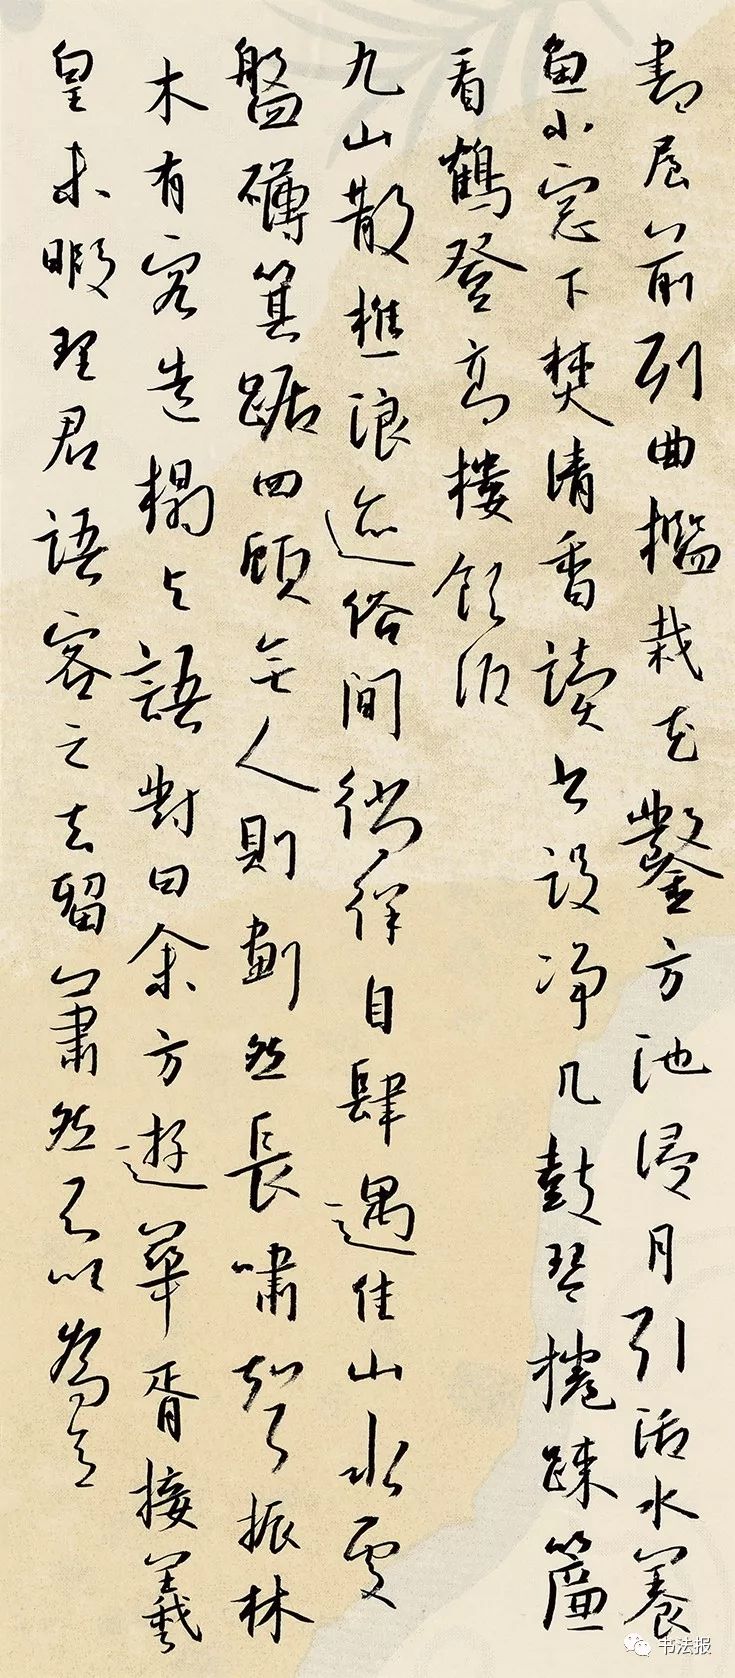 書屋前列曲檻栽花鑿方池浸月引活水養
魚小窓下焚清香讀書設净几鼓琴捲疎簾
看鶴登高樓飲酒
九山散樵浪迹俗間徜徉自肆遇佳山水處
盤礴箕踞四顧無人則劃然長嘯聲振林
木有客造榻與語對曰余方遊華胥接羲
皇未暇理君語客之去留蕭然不以為意
书法报